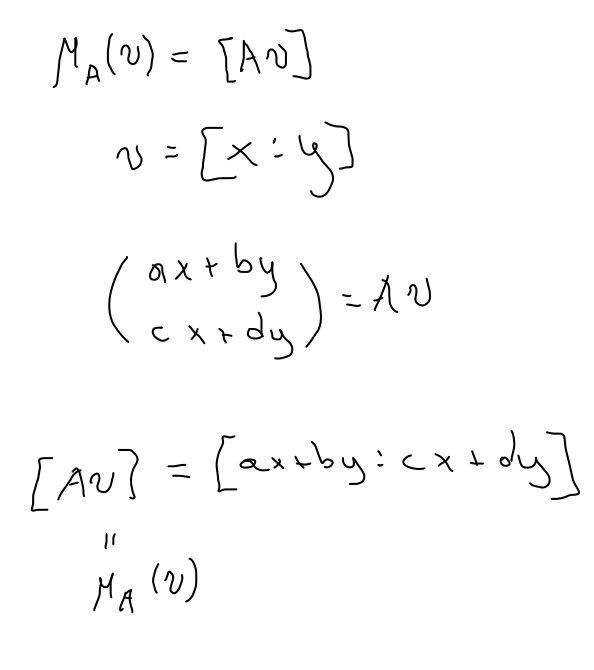 M_A(v) = [Av]
v = [x : y]
(ax + by
cx + dy) = Av
[Av] = [ax+by : cx + dy]
=
M_A(v)